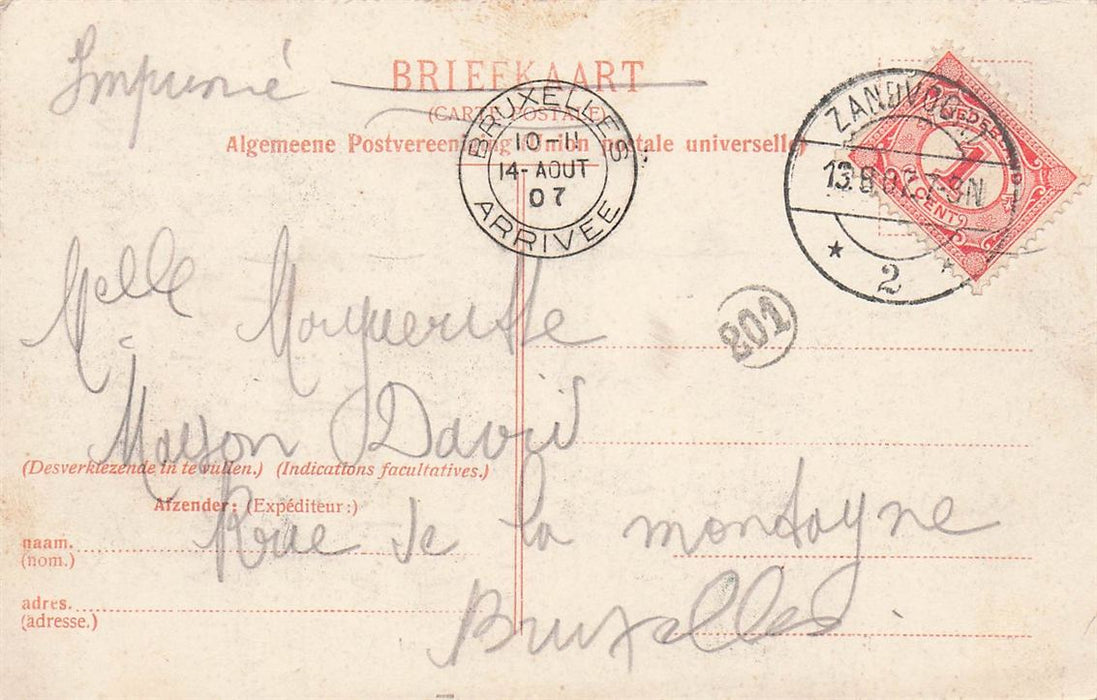 Imprimé
BRIEFKAART
(CARTE POSTALE)
Algemeene Postvereeniging Union postale universelle
BRUXELLES
10-11
14-AOUT
07
ARRIVÉE
ZANDVOO
13.8.07. 7-9N
* 2 *
NEDERLAND
1
CENT
201
Melle Marguerite
Maison David
Rue de la montagne
Bruxelles
(Desverkiezende in te vullen.) (Indications facultatives.)
Afzender: (Expéditeur:)
naam.
(nom.)
adres.
(adresse.)